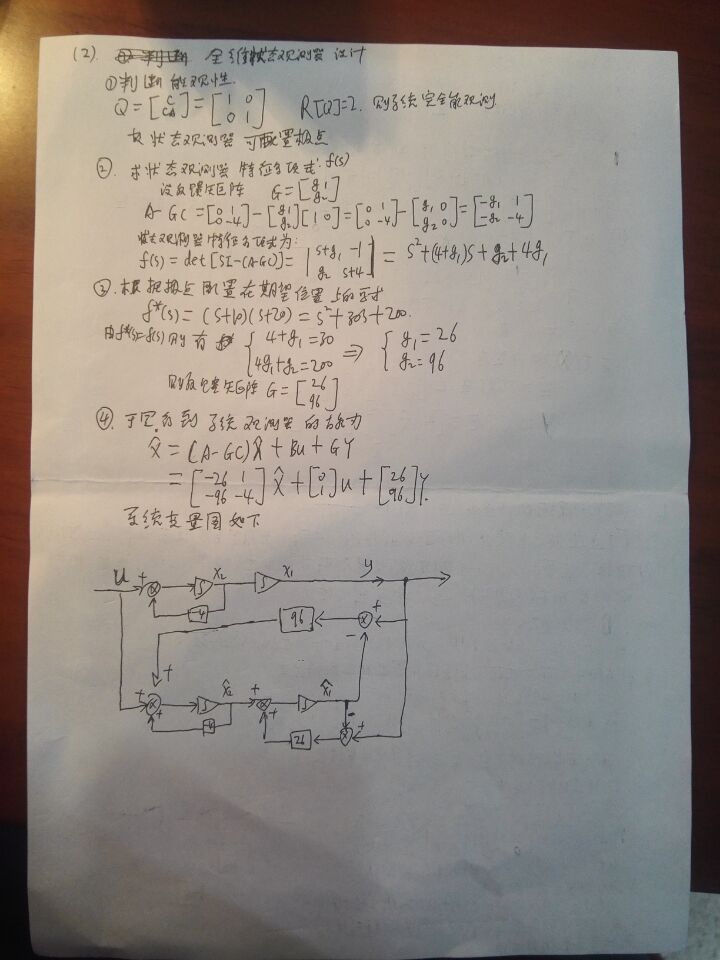 (2). 全维状态观测器设计
①判断能观性.
Q = [C CA] = [1 0 0 1] R[Q]=2. 则系统完全能观测.
故状态观测器可配置极点
②. 求状态观测器特征多项式: f(s)
设反馈矩阵 G = [g₁ g₂]
A-GC = [0 1 0 -4] - [g₁ g₂][1 0] = [0 1 0 -4] - [g₁ 0 g₂ 0] = [-g₁ 1 -g₂ -4]
状态观测器特征多项式为:
f(s) = det[SI-(A-GC)] = |s+g₁ -1 g₂ s+4| = s²+(4+g₁)s + g₂+4g₁
③. 根据极点配置在期望位置上的要求
f*(s) = (s+10)(s+20) = s²+30s+200.
由f*(s)=f(s) 则有 {4+g₁=30 4g₁+g₂=200 ⇒ {g₁=26 g₂=96
则反馈矩阵 G = [26 96]
④. 于是得到系统观测器的方程为
X̂ = (A-GC)X̂ + Bu + GY
= [-26 1 -96 -4] X̂ + [0 1]u + [26 96]Y.
系统变量图如下
u + ∫ x₂ ∫ x₁ y
-4 96 + -
+
+ + ∫ x̂₂ + + ∫ x̂₁ - +
-4 26